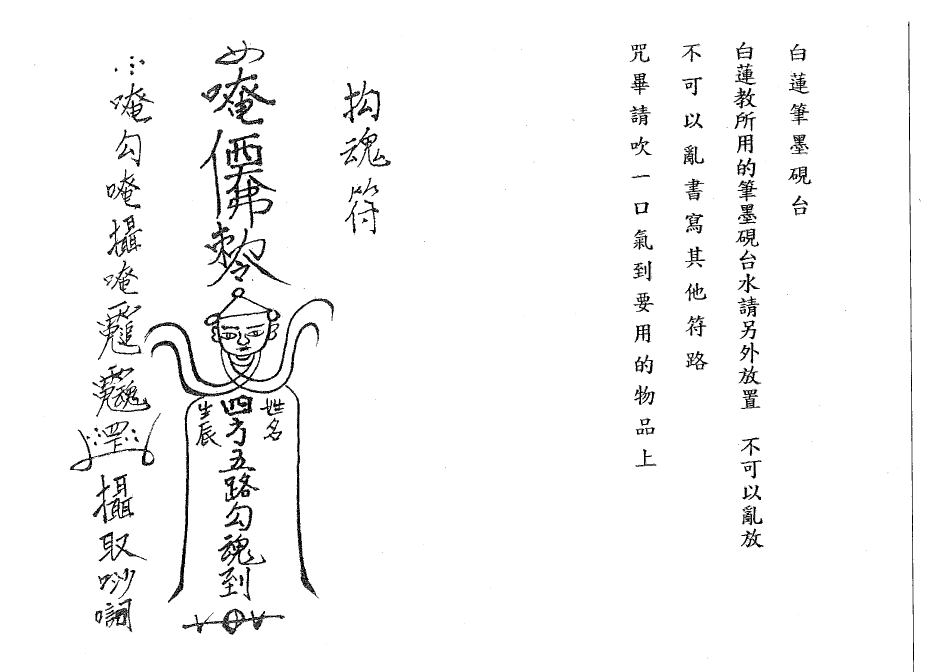 白蓮筆墨硯台
白蓮教所用的筆墨硯台水請另外放置 不可以亂放
不可以亂書寫其他符路
咒畢請吹一口氣到要用的物品上
拘魂符
唵
敕令
姓名
四方五路勾魂到
生辰
唵勾唵攝唵
攝取